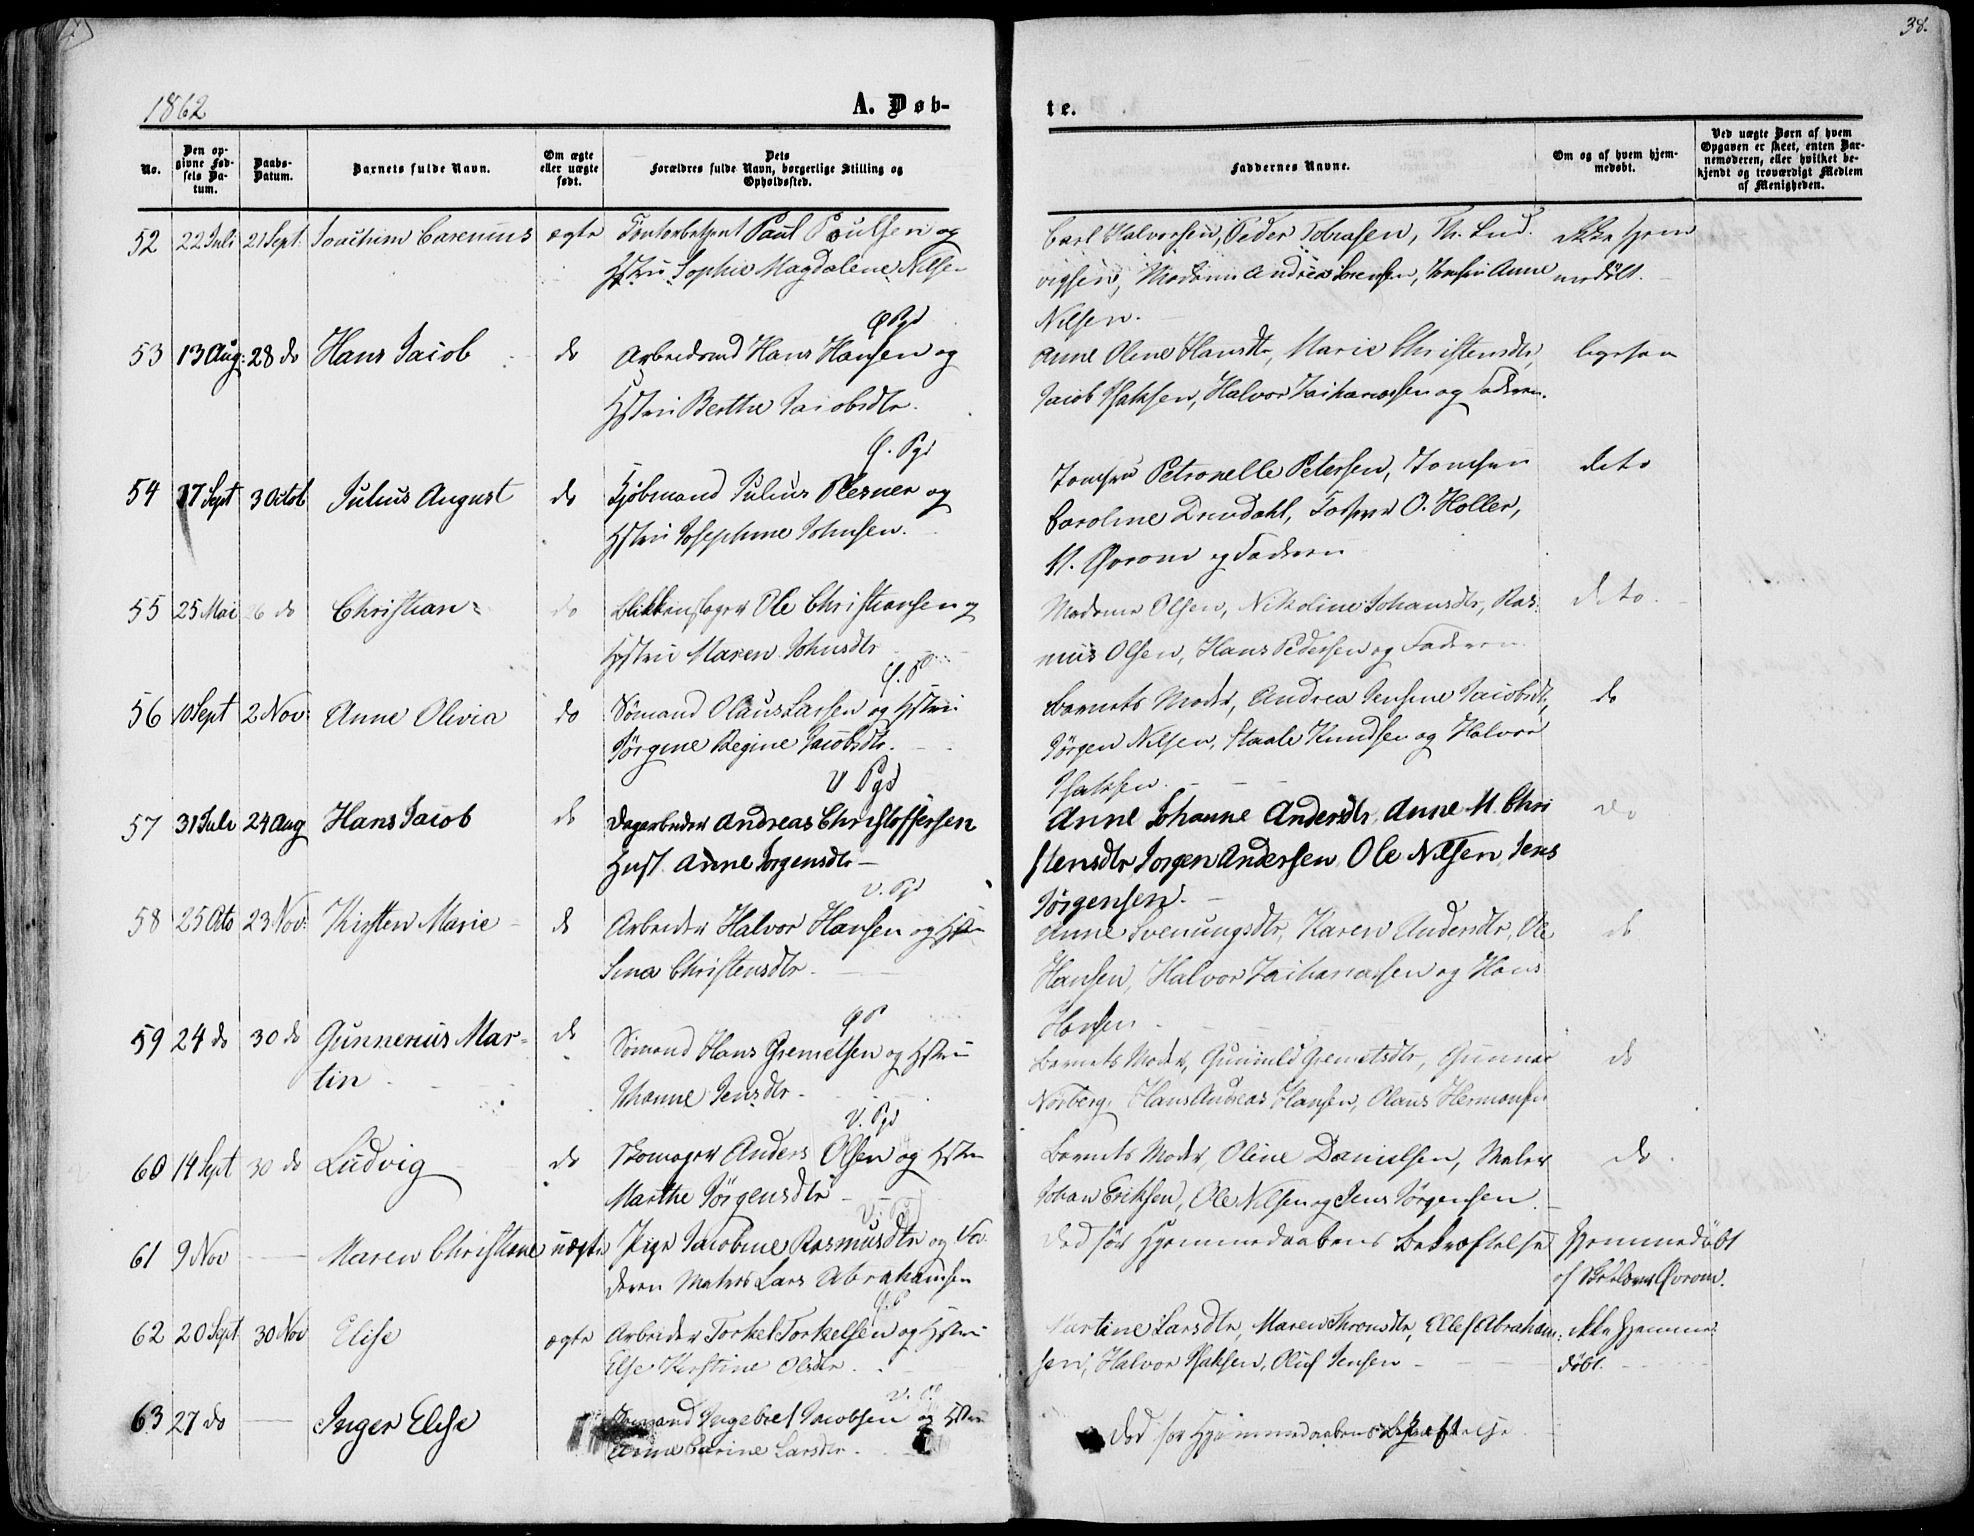 38.
1862
A. Døb-
te.
No.
Den op-
givne Fød-
sels Da-
tum.
Daabs-
Datum.
Barnets fulde Navn.
Om ægte
eller uægte
født.
Dets
Forældres fulde Navn, borgerlige Stilling og
Opholdssted.
Faddernes Navne.
Om og af hvem hjem-
medøbt.
Ved uægte Børn af hvem
Opgaven er skeet, enten Bar-
nemoderen, eller hvilket be-
kjendt og troværdigt Medlem
af Menigheden.
52 22 Juli 21 Sept. Joachim Carenius ægte Paul Poulsen og
Hstru Sophie Magdalene Nilsen
Carl Halvorsen, Peder Tobiasen, Th. Lud.
vigsen, Madame Andrea Sørensen, Jomfru Anne
Nilsen.
Ikke hjem
medøbt.
53 13 Aug: 28 do Hans Jacob do Arbeidsmd Hans Hansen og
Hstru Berthe Jacobsdtr.
Anne Olene Hansdtr, Marie Christensdtr,
Jacob Isaksen, Halvor Zachariassen og Faderen.
ligesaa
54 17 Sept 3 Octob Julius August do Kjøbmand Julius Plesner og
Hstru Josephine Johnsen.
Jomfru Petronelle Petersen, Jomfru
Caroline Drevdahl, O. Holler,
N. Øvrom og Faderen
deto
55 25 Mai 26 do Christian do Blikkenslager Ole Christiansen og
Hstru Maren Johnsdtr
Madame Olsen, Nikoline Johansdtr, Ras-
mus Olsen, Hans Pedersen og Faderen.
deto.
56 10 Sept 2 Nov: Anne Olivia do Sømand Olaus Larsen og Hstru
Jørgine Regine Jacobsdtr.
Barnets Moder, Andrea Jensine Jacobsdtr,
Jørgen Nilsen, Staale Knudsen og Halvor
Isaksen.
do
57 31 Juli 24 Aug Hans Jacob do Dagarbeider Andreas Christoffersen
Hust. Anne Jørgensdtr
Anne Johanne Andersdtr, Anne M. Chri
stensdtr Jørgen Andersen Ole Nilsen Jens
Jørgensen.
do
58 25 Oto 23 Nov: Kirsten Marie do Arbeider Halvor Hansen og Hstru
Sina Christensdtr.
Anne Svenungsdtr, Karen Andersdtr, Ole
Hansen, Halvor Zachariassen og Hans
Hansen
do
59 24 do 30 do Gunnerius Mar-
tin
do Sømand Hans Gremetsen og Hstru
Johanne Jensdtr.
Barnets Moder, Gunnild Gremetsdtr, Gunnar
Norberg, Hans Andreas Hansen, Olaus Hermansen
do
60 14 Sept 30 do Ludvig do Skomager Anders Olsen og Hstru
Marthe Jørgensdtr
Barnets Moder, Oline Danielsen, Maler
Johan Eriksen, Ole Nilsen og Jens Jørgensen.
do.
61 9 Nov Maren Christiane uægte Pige Jacobine Rasmusdtr og Fa-
deren Matros Lars Abrahamsen
Død før Hjemmedaabens Bekræftelse
Hjemmedøbt
af Øvrom.
62 20 Sept 30 Nov Elise ægte Arbeider Torkel Torkelsen og Hstru
Else Kirstine Olsdtr.
Martine Larsdtr, Maren Thronsdtr, Ellef Abraham-
sen, Halvor Isaksen, Oluf Jensen
ikke hjemme-
døbt.
63 27 do Inger Elise Sømand Ingebret Jacobsen og Hstru
Anne Carine Larsdtr.
Død før Hjemmedaabens Bekræftelse